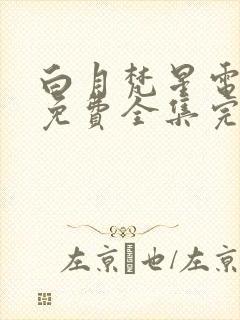 白月梵星電
免費全集完
左京 也/左京